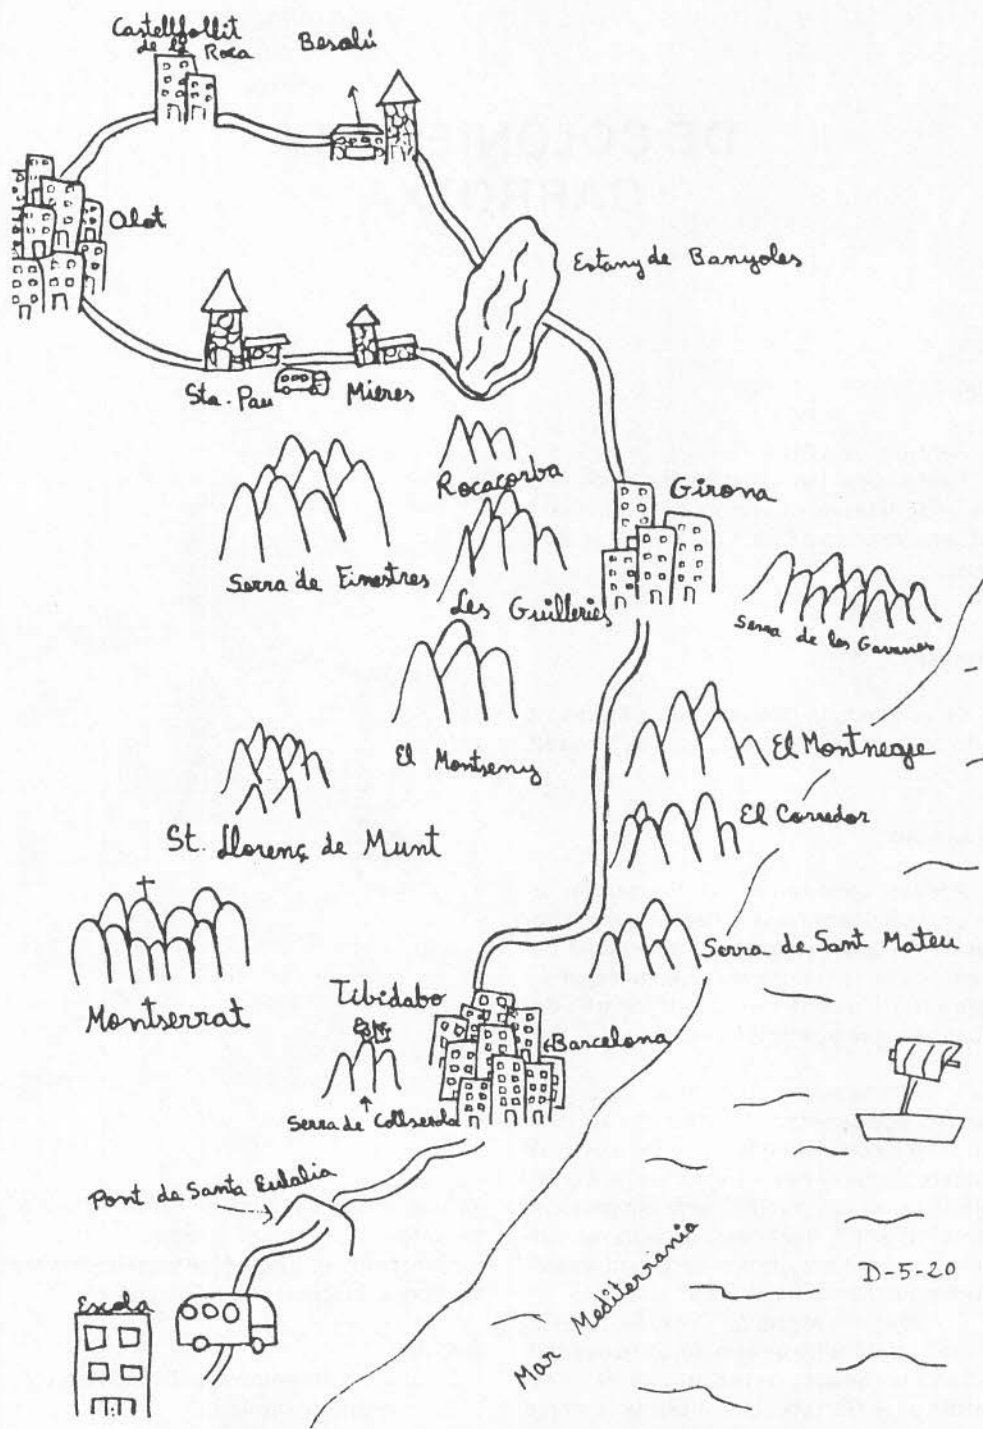 Castellfollit
de la Roca
Besalú
Olot
Estany de Banyoles
Sta. Pau
Mieres
Rocacorba
Girona
Serra de Finestres
Les Guilleries
Serra de les Gavarres
El Montseny
El Montnegre
El Corredor
St. Llorenç de Munt
Serra de Sant Mateu
Montserrat
Tibidabo
Barcelona
Serra de Collserola
Pont de Santa Eulalia
Escola
Mar Mediterrània
D-5-20